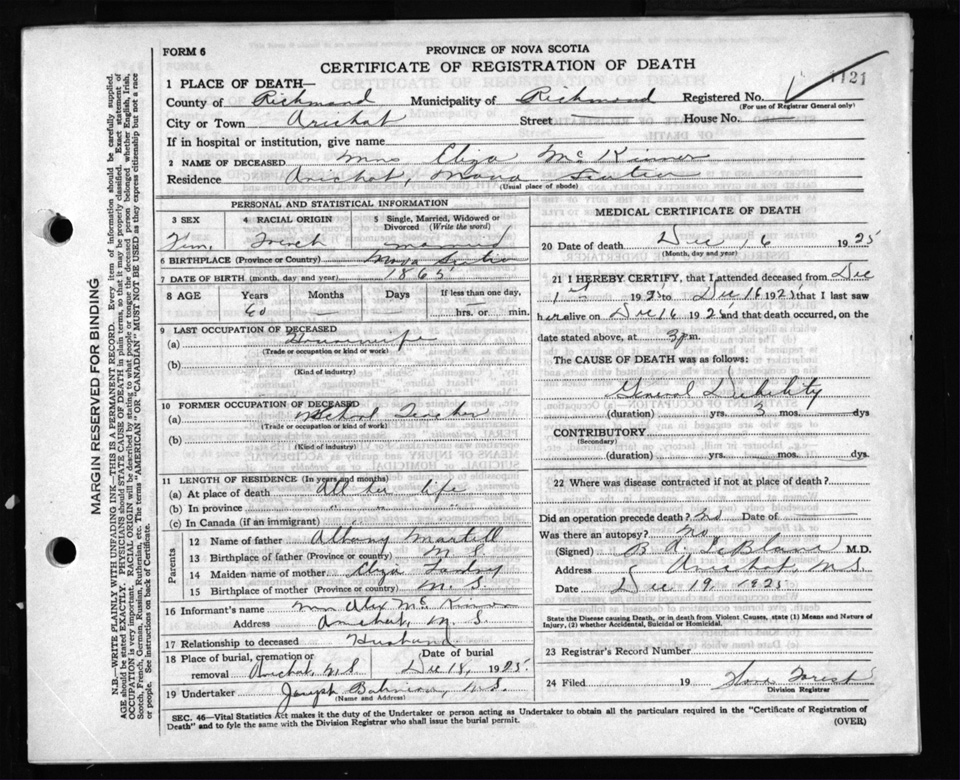 FORM 6
PROVINCE OF NOVA SCOTIA
CERTIFICATE OF REGISTRATION OF DEATH
1121
1 PLACE OF DEATH—
County of Richmond Municipality of Richmond Registered No.
(For use of Registrar General only)
City or Town Arichat Street House No.
If in hospital or institution, give name
2 NAME OF DECEASED Mrs Eliza McKinnon
Residence Arichat, Nova Scotia
(Usual place of abode)
PERSONAL AND STATISTICAL INFORMATION
3 SEX 4 RACIAL ORIGIN 5 Single, Married, Widowed or Divorced (Write the word)
Fem. French married
6 BIRTHPLACE (Province or Country) Nova Scotia
7 DATE OF BIRTH (month, day, and year) 1865
8 AGE Years Months Days If less than one day,
60 — — hrs. or min.
9 LAST OCCUPATION OF DECEASED
(a) Housewife
(Trade or occupation or kind or work)
(b)
(Kind of industry)
10 FORMER OCCUPATION OF DECEASED
(a) School Teacher
(Trade or occupation or kind or work)
(b)
(Kind of industry)
11 LENGTH OF RESIDENCE (In years and months)
(a) At place of death All her life
(b) In province " " "
(c) In Canada (if an immigrant)
Parents
12 Name of father Martell
13 Birthplace of father (Province or country) N.S.
14 Maiden name of mother Eliza
15 Birthplace of mother (Province or country) N.S.
16 Informant's name Alex McKinnon
Address Arichat, N.S.
17 Relationship to deceased Husband
18 Place of burial, cremation or removal Arichat, N.S. Date of burial Dec 18, 1925
19 Undertaker Joseph N.S.
(Name and Address)
MEDICAL CERTIFICATE OF DEATH
20 Date of death Dec 16 1925
(Month, day and year)
21 I HEREBY CERTIFY, that I attended deceased from Dec
1925 to Dec 16 1925 that I last saw
her alive on Dec 16 1925 and that death occurred, on the
date stated above, at 3 p.m.
The CAUSE OF DEATH was as follows:
General Debility
(duration) yrs. 3 mos. dys
CONTRIBUTORY
(Secondary)
(duration) yrs. mos. dys.
22 Where was disease contracted if not at place of death?
Did an operation precede death? No Date of
Was there an autopsy? No
(Signed) B. A. LeBlanc M.D.
Address Arichat, N.S.
Date Dec 19 1925
State the Disease causing Death, or in death from Violent Causes, state (1) Means and Nature of Injury, (2) whether Accidental, Suicidal or Homicidal.
23 Registrar's Record Number
24 Filed 19 Forest
Division Registrar
SEC. 46—Vital Statistics Act makes it the duty of the Undertaker or person acting as Undertaker to obtain all the particulars required in the "Certificate of Registration of
Death" and to fyle the same with the Division Registrar who shall issue the burial permit.
(OVER)
MARGIN RESERVED FOR BINDING
N.B.—WRITE PLAINLY WITH UNFADING INK—THIS IS A PERMANENT RECORD. Every item of information should be carefully supplied.
AGE should be stated EXACTLY. PHYSICIANS should STATE CAUSE OF DEATH in plain terms, so that it may be properly classified. Exact statement of
OCCUPATION is very important. RACIAL ORIGIN will be described by stating to what people or tongue the deceased person belonged whether English, Irish,
Scotch, French, German, Russian, Ruthenian, etc. The terms "AMERICAN" OR "CANADIAN" MUST NOT BE USED as they express citizenship but not a race
or people. See instructions on back of Certificate.